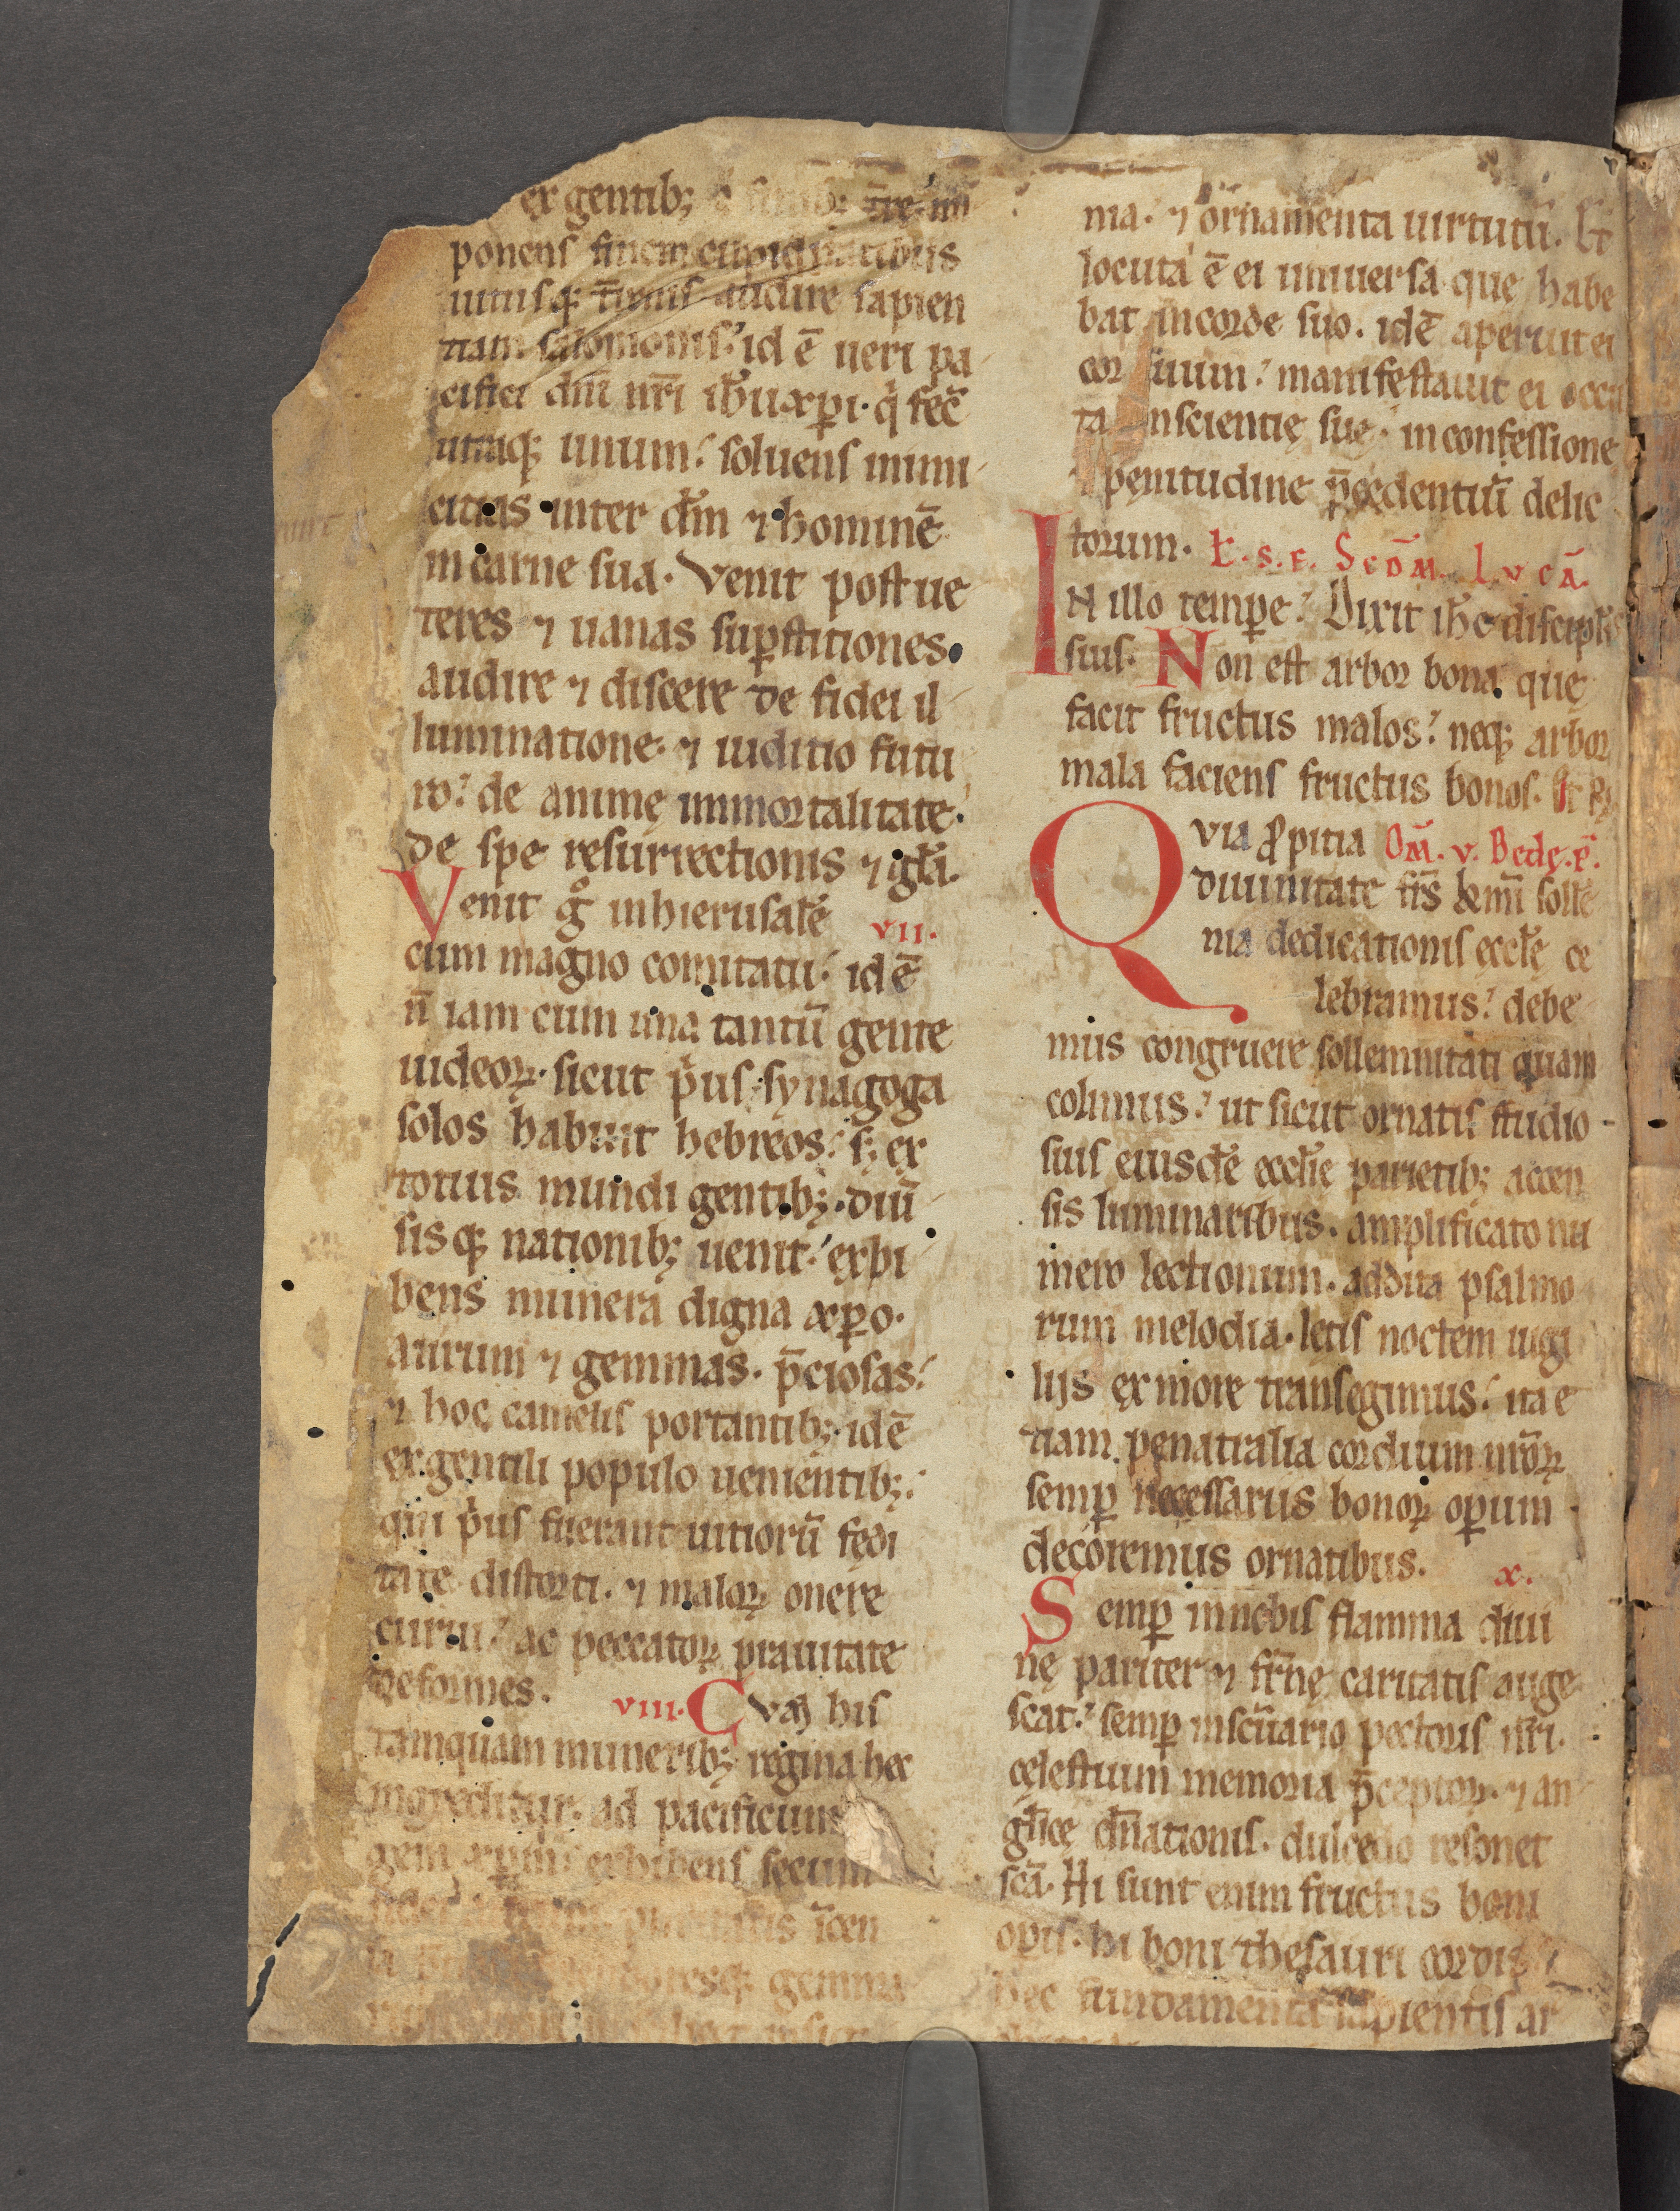 ex gentib; a finib; tr̄e im
ponens finem cupiditatibus
uitiisq; t̄renis audire sapien
tiam salomonis. id ē ueri pa
cifici dn̄i nr̄i ih̄u xp̄i. q̇ fec̄
utraq; unum. soluens inimi
citias inter dm̄ ⁊ hominē
in carne sua. Venit post ue
teres ⁊ uanas sup̱stitiones.
audire ⁊ discere de fidei il
luminatione. ⁊ iuditio futu
ro. de animę immortalitate.
de spe resurrectionis ⁊ gl̄a.
Venit g̊ in hierusalē vii.
cum magno comitatu. id ē
n̄ iam cum una tantū gente
iudeoꝝ. sicut ṗus synagoga
solos habuit hebreos. s; ex
totius mundi gentib;. diū
sisq; nationib; uenit. exhi
bens munera digna xp̄o.
aurum ⁊ gemmas. p̄ciosas.
⁊ hoc camelis portantib;. id ē
ex gentili populo uenientib;.
qui ṗus fuerant uitiorū fędi
tate distorti. ⁊ maloꝝ onere
curui. ac peccatoꝝ prauitate
deformes. viii. Cvm his
tamquam munerib; regina hec
ingreditur. ad pacificum
gem xp̄m. exhibens secum
gemma
ma. ⁊ ornamenta uirtutū. Et
locuta ē ei uniuersa que habe
bat in corde suo. id ē aperuit ei
cor suum. manifestauit ei occul
ta conscientię suę. in confessione
⁊ penitudine p̄cedentiū delic
torum. Ł. s. e. Scd̄m. Lvcā.
IN illo temp̱e. Dixit ih̄c discipl̄is
suis. Non est arbor bona que
facit fructus malos. neq; arbor
mala faciens fructus bonos. Et R̄
Qvia ꝓpitia Om̄. v. Bedę. p̄.
diuinitate fr̄s km̄i solle
nia dedicationis ęccl̄ę ce
lebramus. debe
mus congruere sollemnitati quam
colimus. ut sicut ornatis studio
sius eiusdē eccl̄ie parietib; accen
sis luminaribus. amplificato nu
mero lectionum. addita psalmo
rum melodia. letis noctem uigi
lijs ex more transegimus. ita e
tiam penatralia cordium nr̄oꝝ
semp̱ necessariis bonoꝝ op̱um
decoremus ornatibus. x.
Semp̱ in nobis flamma diui
nę pariter ⁊ fr̄nę caritatis auge
scat. semp̱ in scūario pectoris nr̄i.
cęlestium memoria p̄ceptoꝝ. ⁊ an
gl̄icę dn̄ationis. dulcedo resonet
scā. Hi sunt enim fructus boni
op̱is. hi boni thesauri cordis
hec fundamenta sapientis ar